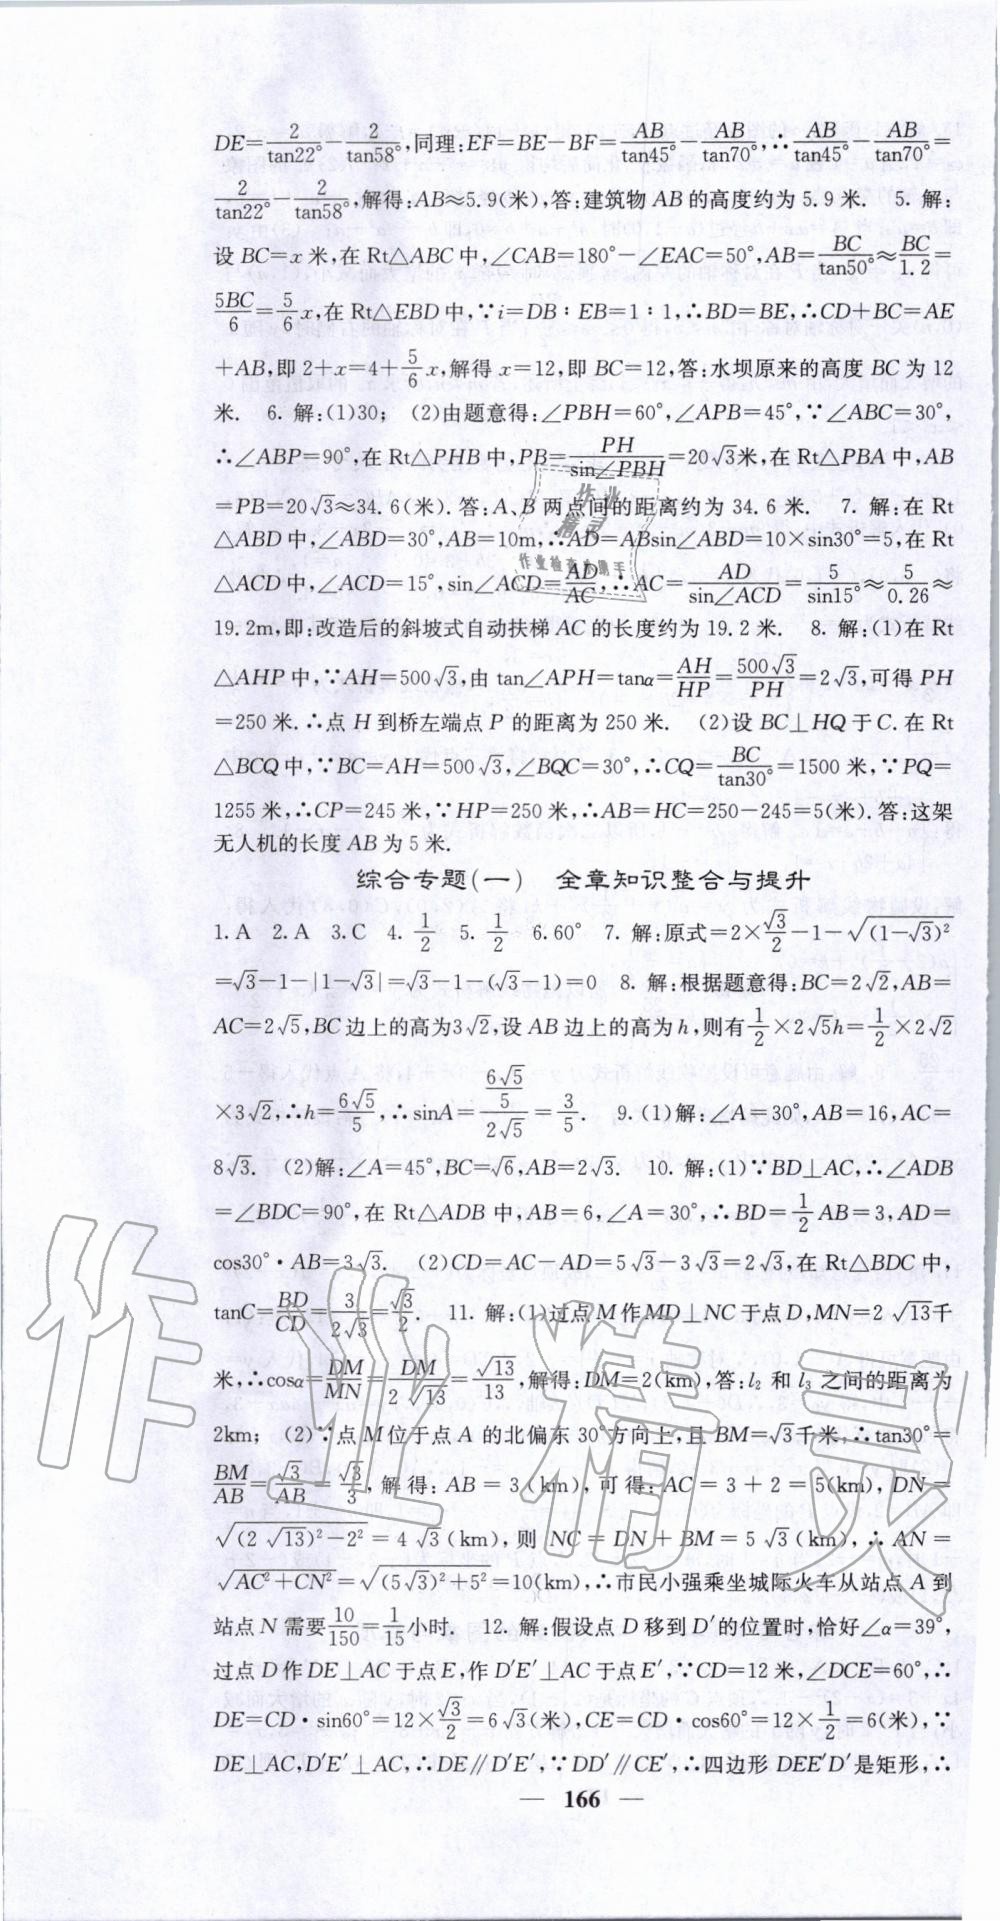 DE=2/tan22°-2/tan58°,同理:EF=BE-BF=AB/tan45°-AB/tan70°,∴AB/tan45°-AB/tan70°=
2/tan22°-2/tan58°,解得:AB≈5.9(米),答:建筑物AB的高度约为5.9米. 5. 解:
设BC=x米,在Rt△ABC中,∠CAB=180°-∠EAC=50°,AB=BC/tan50°≈BC/1.2=
5BC/6=5/6x,在Rt△EBD中,∵i=DB∶EB=1∶1,∴BD=BE,∴CD+BC=AE
+AB,即2+x=4+5/6x,解得x=12,即BC=12,答:水坝原来的高度BC为12
米. 6. 解:(1)30; (2)由题意得:∠PBH=60°,∠APB=45°,∵∠ABC=30°,
∴∠ABP=90°,在Rt△PHB中,PB=PH/sin∠PBH=20√3米,在Rt△PBA中,AB
=PB=20√3≈34.6(米).答:A、B两点间的距离约为34.6米. 7. 解:在Rt
△ABD中,∠ABD=30°,AB=10m,∴AD=ABsin∠ABD=10×sin30°=5,在Rt
△ACD中,∠ACD=15°,sin∠ACD=AD/AC,∴AC=AD/sin∠ACD=5/sin15°≈5/0.26≈
19.2m,即:改造后的斜坡式自动扶梯AC的长度约为19.2米. 8. 解:(1)在Rt
△AHP中,∵AH=500√3,由tan∠APH=tanα=AH/HP=500√3/PH=2√3,可得PH
=250米.∴点H到桥左端点P的距离为250米. (2)设BC⊥HQ于C.在Rt
△BCQ中,∵BC=AH=500√3,∠BQC=30°,∴CQ=BC/tan30°=1500米,∵PQ=
1255米,∴CP=245米,∵HP=250米,∴AB=HC=250-245=5(米).答:这架
无人机的长度AB为5米.
综合专题(一) 全章知识整合与提升
1.A 2.A 3.C 4.1/2 5.1/2 6.60° 7. 解:原式=2×√3/2-1-√(1-√3)²
=√3-1-|1-√3|=√3-1-(√3-1)=0 8. 解:根据题意得:BC=2√2,AB=
AC=2√5,BC边上的高为3√2,设AB边上的高为h,则有1/2×2√5h=1/2×2√2
×3√2,∴h=6√5/5,∴sinA=(6√5/5)/2√5=3/5. 9.(1)解:∠A=30°,AB=16,AC=
8√3. (2)解:∠A=45°,BC=√6,AB=2√3. 10. 解:(1)∵BD⊥AC,∴∠ADB
=∠BDC=90°,在Rt△ADB中,AB=6,∠A=30°,∴BD=1/2AB=3,AD=
cos30°·AB=3√3. (2)CD=AC-AD=5√3-3√3=2√3,在Rt△BDC中,
tanC=BD/CD=3/2√3=√3/2. 11. 解:(1)过点M作MD⊥NC于点D,MN=2√13千
米,∴cosα=DM/MN=DM/2√13=√13/13,解得:DM=2(km),答:l₂和l₃之间的距离为
2km; (2)∵点M位于点A的北偏东30°方向上,且BM=√3千米,∴tan30°=
BM/AB=√3/AB=√3/3,解得:AB=3(km),可得:AC=3+2=5(km),DN=
√(2√13)²-2²=4√3(km),则NC=DN+BM=5√3(km),∴AN=
√AC²+CN²=√(5√3)²+5²=10(km),∴市民小强乘坐城际火车从站点A到
站点N需要10/150=1/15小时. 12. 解:假设点D移到D′的位置时,恰好∠α=39°,
过点D作DE⊥AC于点E,作D′E′⊥AC于点E′,∵CD=12米,∠DCE=60°,∴
DE=CD·sin60°=12×√3/2=6√3(米),CE=CD·cos60°=12×1/2=6(米),∵
DE⊥AC,D′E′⊥AC,∴DE∥D′E′,∵DD′∥CE′,∴四边形DEE′D′是矩形,∴
— 166 —
作业
精灵
作业检查小助手
作业精灵